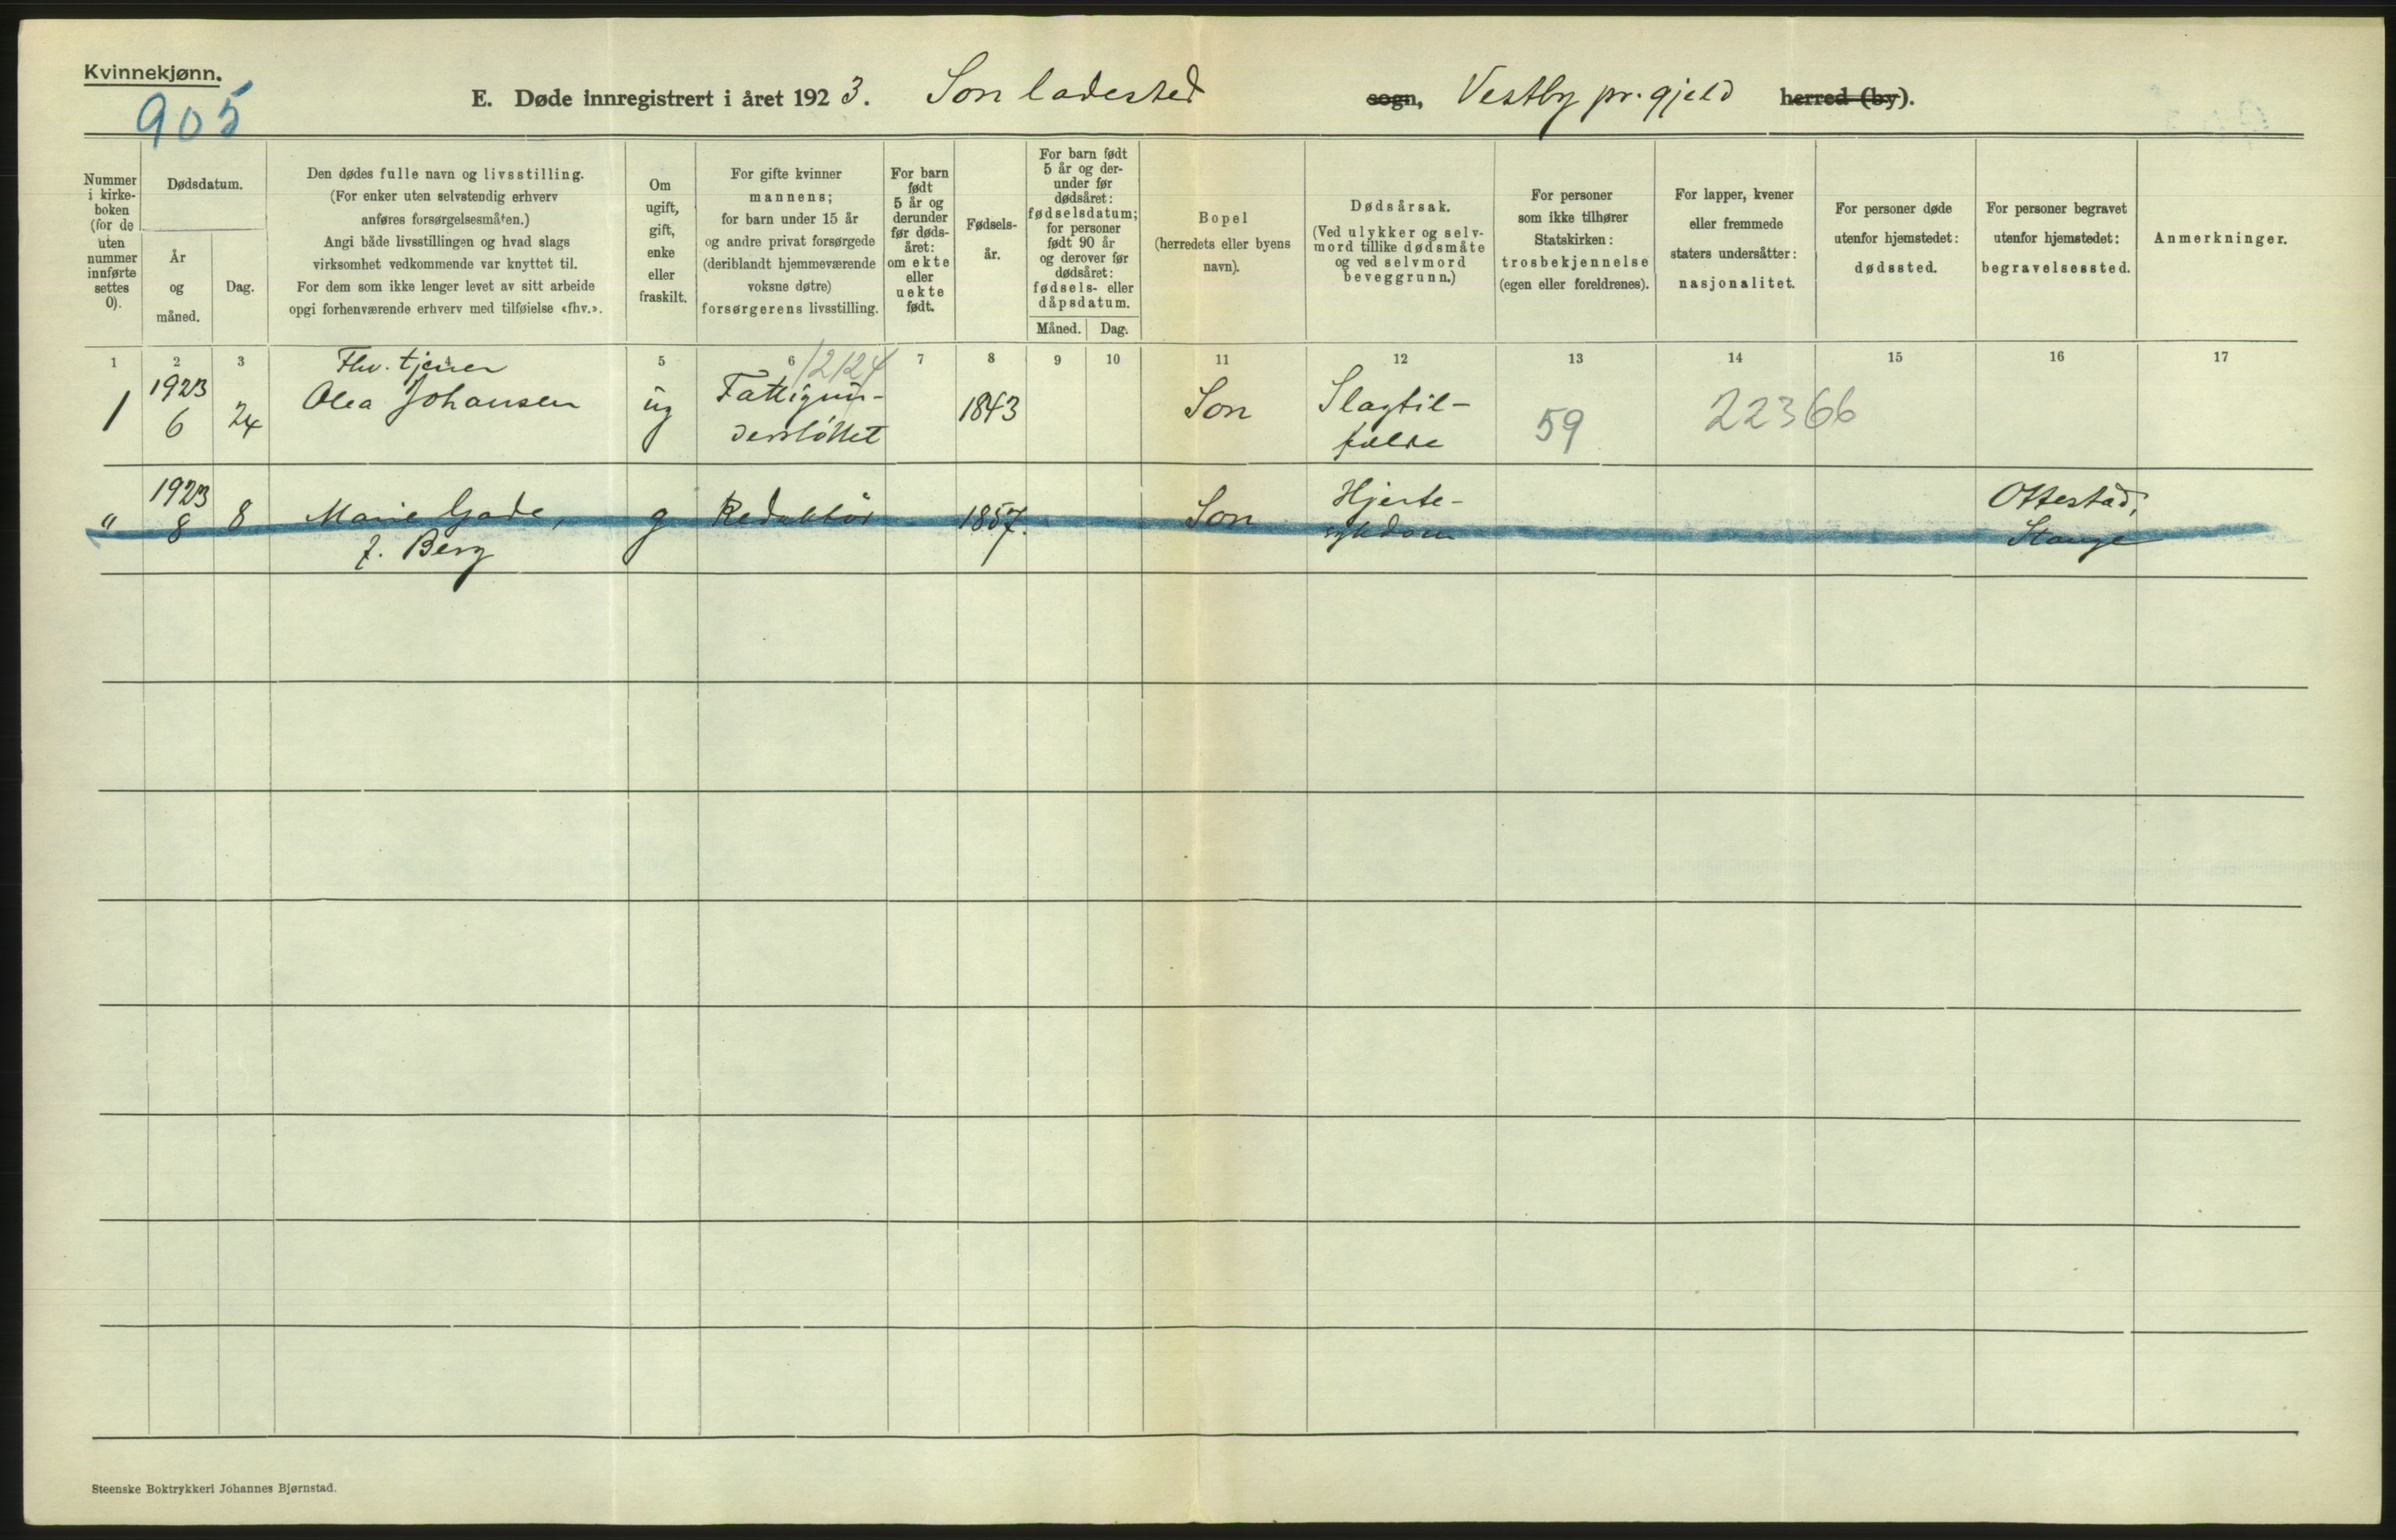 Kvinnekjønn.
905
E. Døde innregistrert i året 1923. Son ladested sogn, Vestby pr.gjeld herred (by).
Nummer
i kirke-
boken
(for de
uten
nummer
innførte
settes
0).
Dødsdatum.
År
og
måned.
Dag.
Den dødes fulle navn og livsstilling.
(For enker uten selvstendig erhverv
anføres forsørgelsesmåten.)
Angi både livsstillingen og hvad slags
virksomhet vedkommende var knyttet til.
For dem som ikke lenger levet av sitt arbeide
opgi forhenværende erhverv med tilføielse «fhv.».
Om
ugift,
gift,
enke
eller
fraskilt.
For gifte kvinner
mannens;
for barn under 15 år
og andre privat forsørgede
(deriblandt hjemmeværende
voksne døtre)
forsørgerens livsstilling.
For barn
født
5 år og
derunder
før døds-
året:
om ekte
eller
uekte
født.
Fødsels-
år.
For barn født
5 år og der-
under før
dødsåret:
fødselsdatum;
for personer
født 90 år
og derover før
dødsåret:
fødsels- eller
dåpsdatum.
Måned. Dag.
Bopel
(herredets eller byens
navn).
Dødsårsak.
(Ved ulykker og selv-
mord tillike dødsmåte
og ved selvmord
beveggrunn.)
For personer
som ikke tilhører
Statskirken:
trosbekjennelse
(egen eller foreldrenes).
For lapper, kvener
eller fremmede
staters undersåtter:
nasjonalitet.
For personer døde
utenfor hjemstedet:
dødssted.
For personer begravet
utenfor hjemstedet:
begravelsessted.
Anmerkninger.
1 2 3 4 5 6 7 8 9 10 11 12 13 14 15 16 17
12124
1
1923
6
24
Fhv. tjener
Olea Johansen
ug
Fattigun-
derstöttet
1843
Son
Slagtil-
fælde
59
22366
"
1923
8
8
Marie Gade,
f. Berg
g
Redaktör
1857.
Son
Hjerte-
sykdom
Ottestad,
Stange
Steenske Boktrykkeri Johannes Bjørnstad.